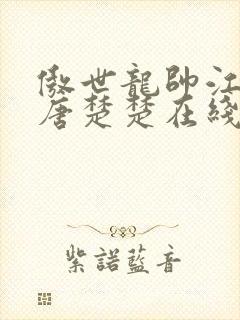 傲世龍帥江
唐楚楚在綫
紫諾藍音